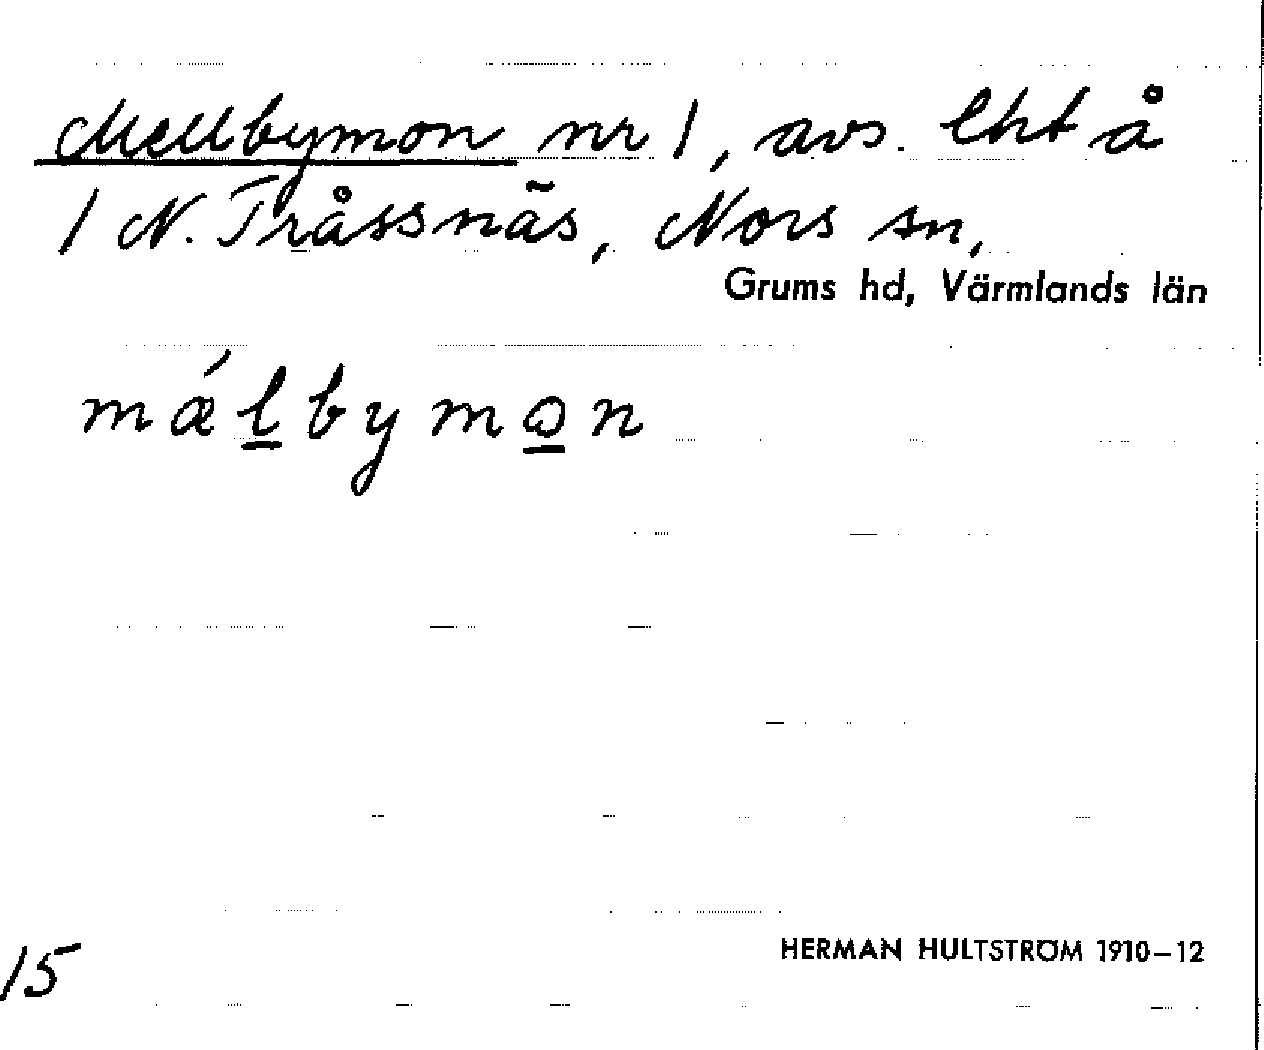 Mellbymon nr 1, avs. lht å
1 N. Tråssnäs, Nors sn,
Grums hd, Värmlands län
mǽl̲bymo̲n
HERMAN HULTSTRÖM 1910–12
15